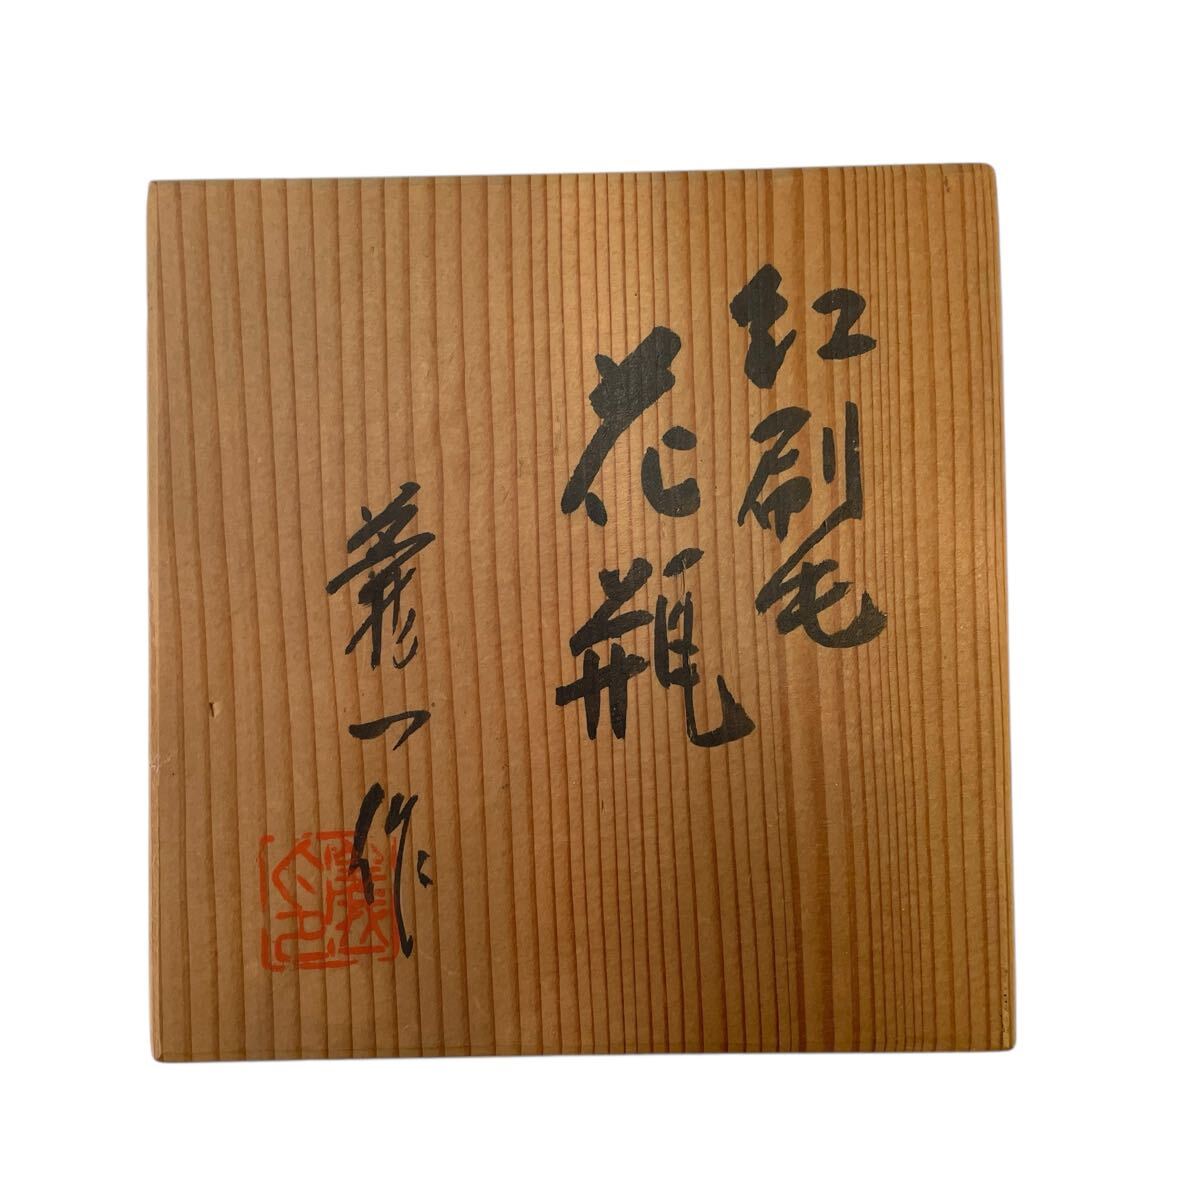 紅刷毛
花瓶
一作